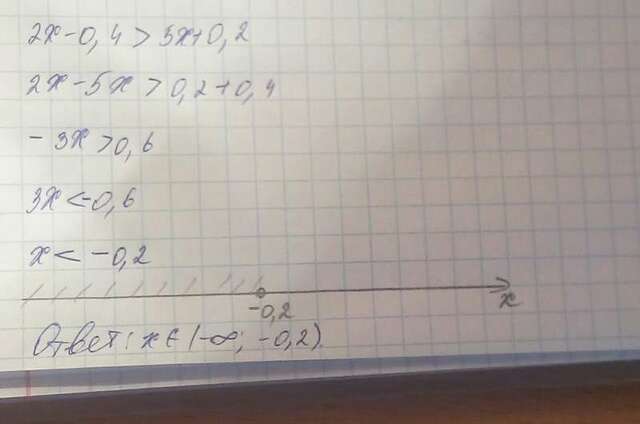 2x-0,4>5x+0,2
2x-5x>0,2+0,4
-3x>0,6
3x<-0,6
x<-0,2
-0,2
x
Ответ: x∈(-∞; -0,2).